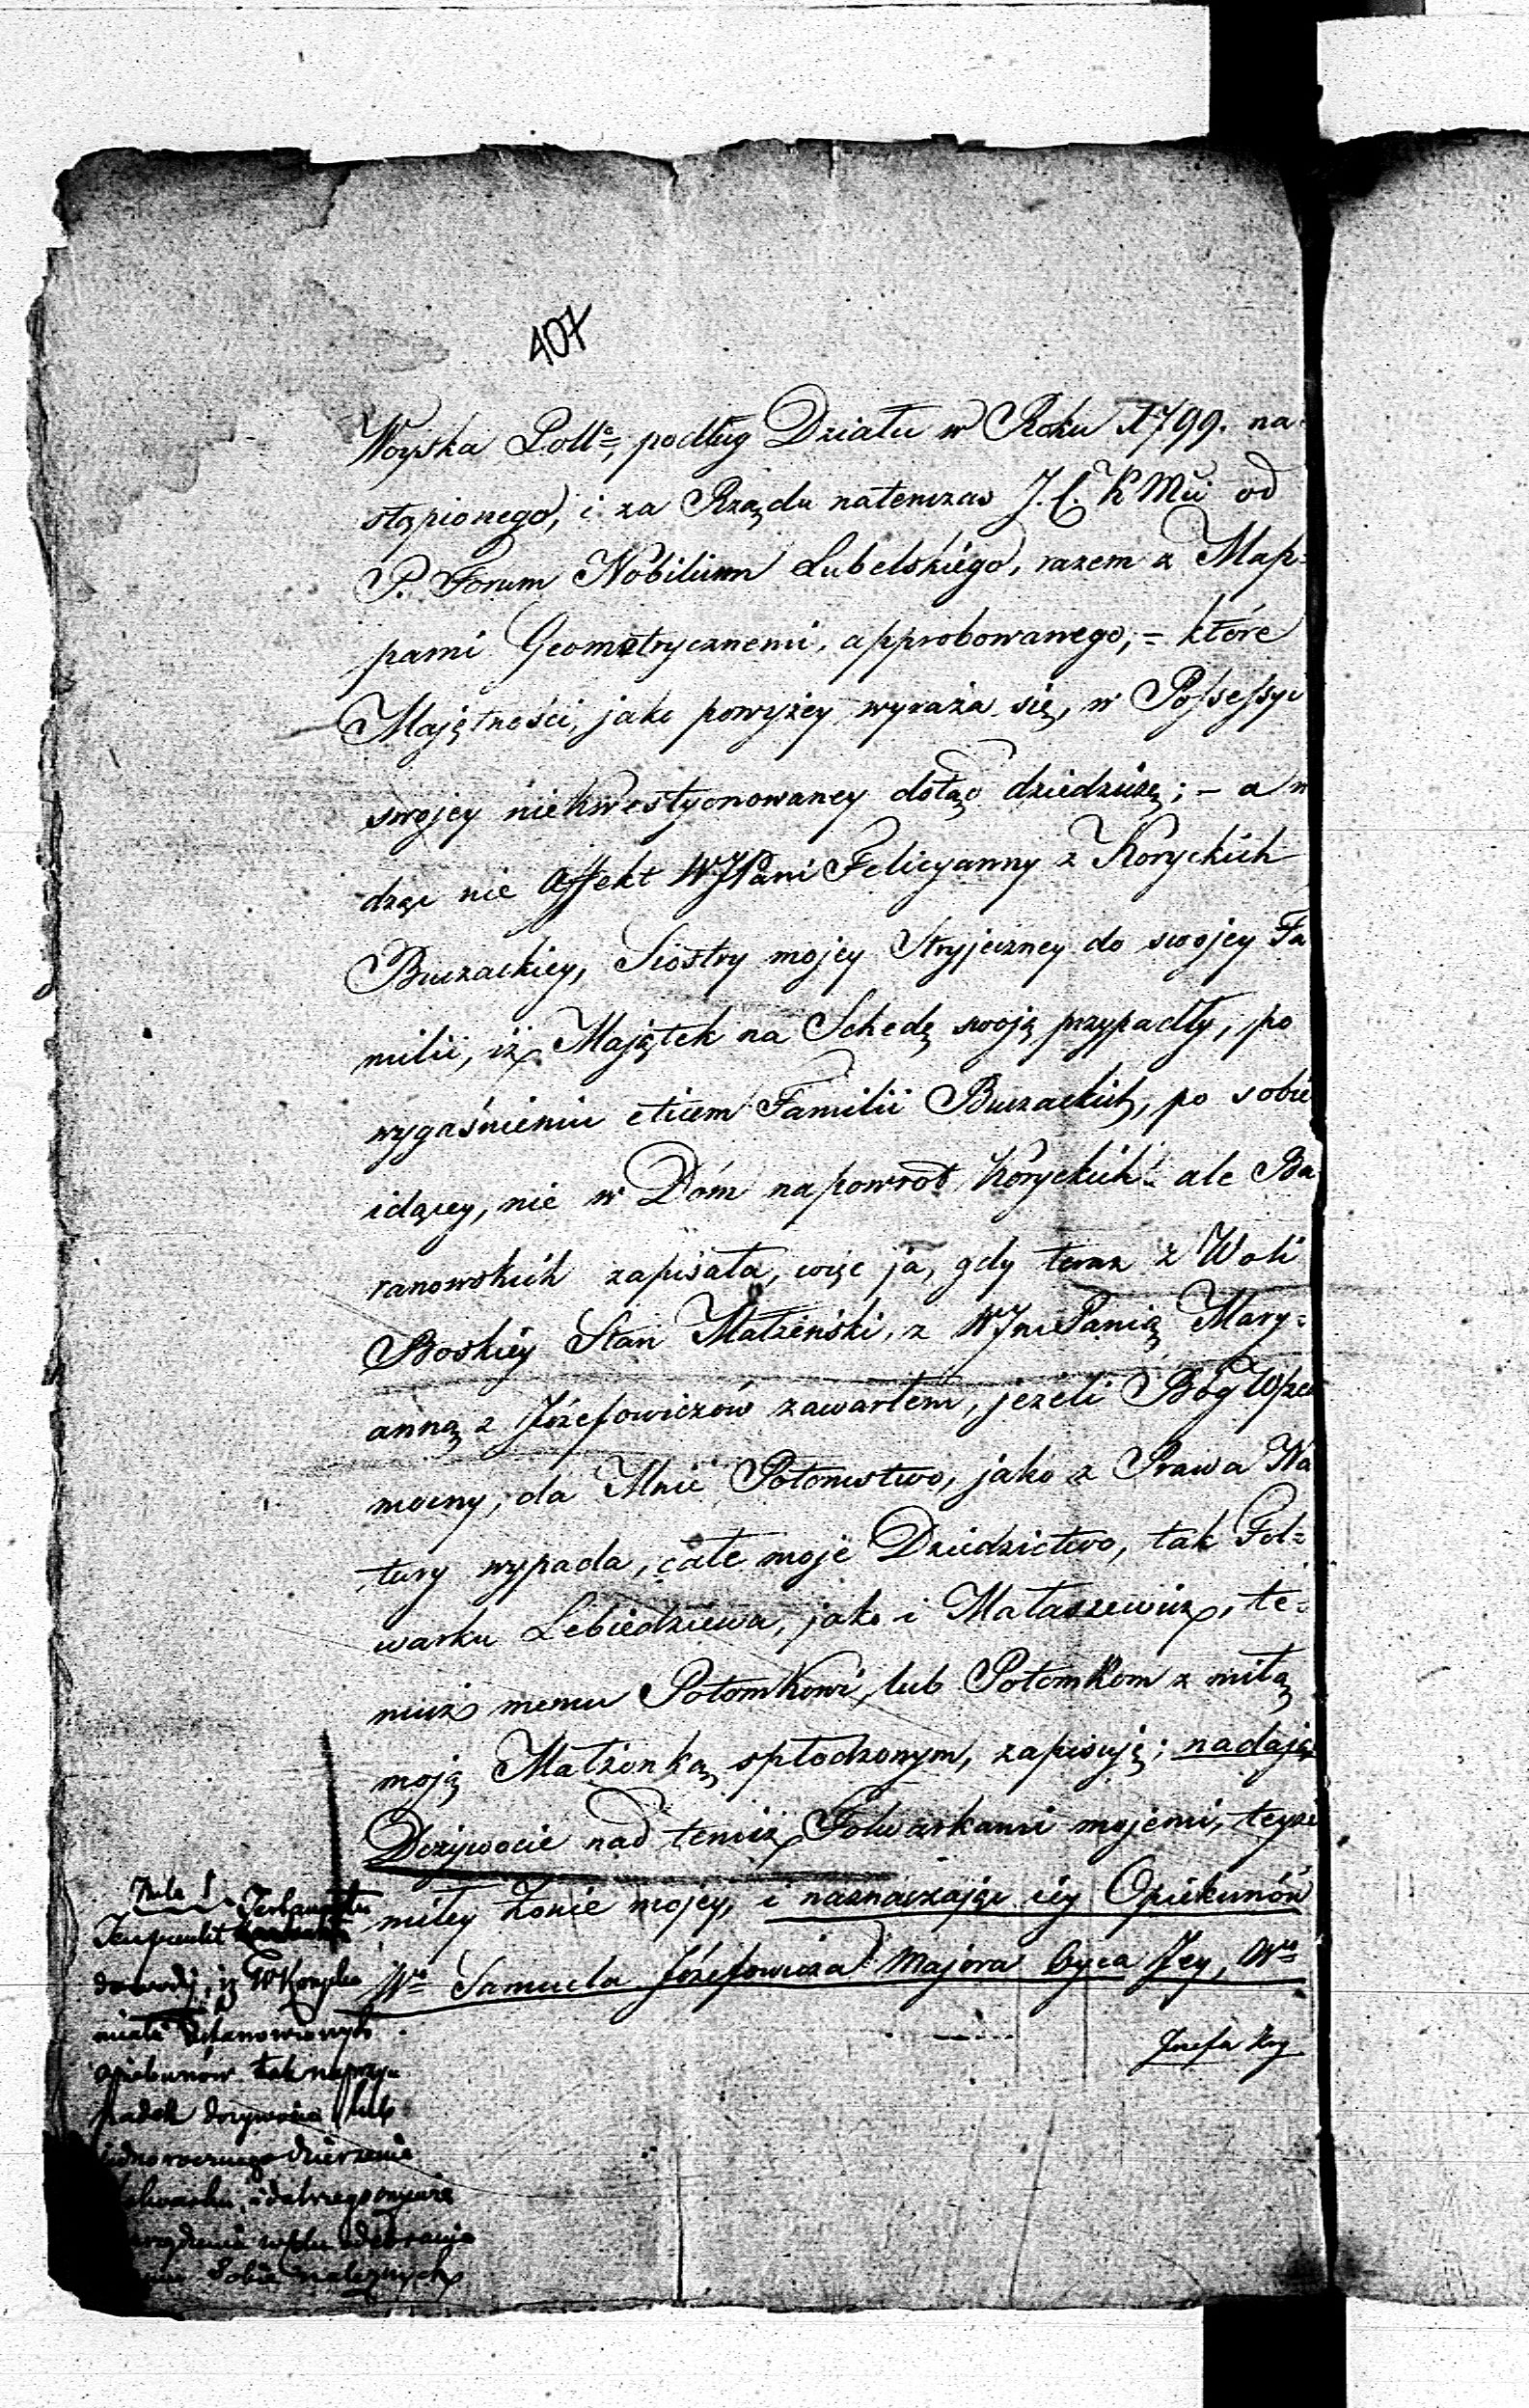 407
Woyska Polls, podług Działu w Roku 1799. na-
stąpionego, i za Rządu natenczas J. C. K Mci od
P. Forum Nobilium Lubelskiego, razem z Map-
pami Geometrycznemi, approbowanego; = które
Majętności, jako powyżey wyraża się, w Possessyi
swojey niekwestyonowaney dotąd dziedziczę; - a wi
dząc nie Affekt WJPani Felicyanny z Koryckich
Buczackiey, Siostry mojey Stryjeczney do swojey Fa
milii, iż Majątek na Schedę swoją przypadły, po
wygaśnieniu Familii Buczackich, po sobie
idącey, nie w Dóm napowrot Koryckich - ale Ba
ranowskich zapisała, więc ja, gdy teraz z Woli
Boskiey Stan Małżeński, z WJmPanią Mary-
anną z Józefowiczów zawarłem, jeżeli Bóg Wsze
mocny, da Mnie Potomstwo, jako z Prawa Na
tury wypada, całe moje Dziedzictwo, tak Fol-
warku Lebiedziewa, jako i Małaszewicz, te-
muż memu Potomkowi, lub Potomkom z miłą
moją Małżonką spłodzonym, zapisuję; nadając
Dożywocie nad temiż Folwarkami mojemi, teyże
miłey Żonie mojey, i naznaczając iey Opiekunów
Wo Samuela Józefowicza Majora Oyca Jey, Wo
Józefa Kor
Testamentu
dowody, iż W Koryckie
miała Postanowionych
opiekunów tak na przy
padek dożywocia lub
jednorocznego dzierżenia
odebrania
Sobie należnych